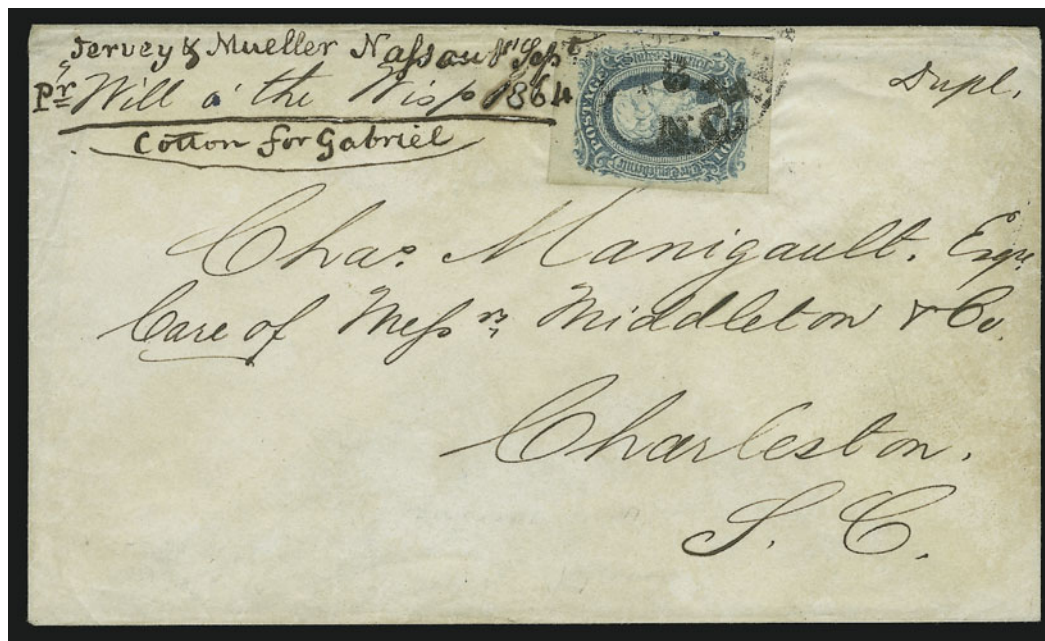 Jervey & Mueller Nassau Sept
Pr Will o' the Wisp 1864
Cotton for Gabriel
Dupl.
Chas. Manigault. Esqre.
Care of Messrs. Middleton & Co.
Charleston.
S. C.